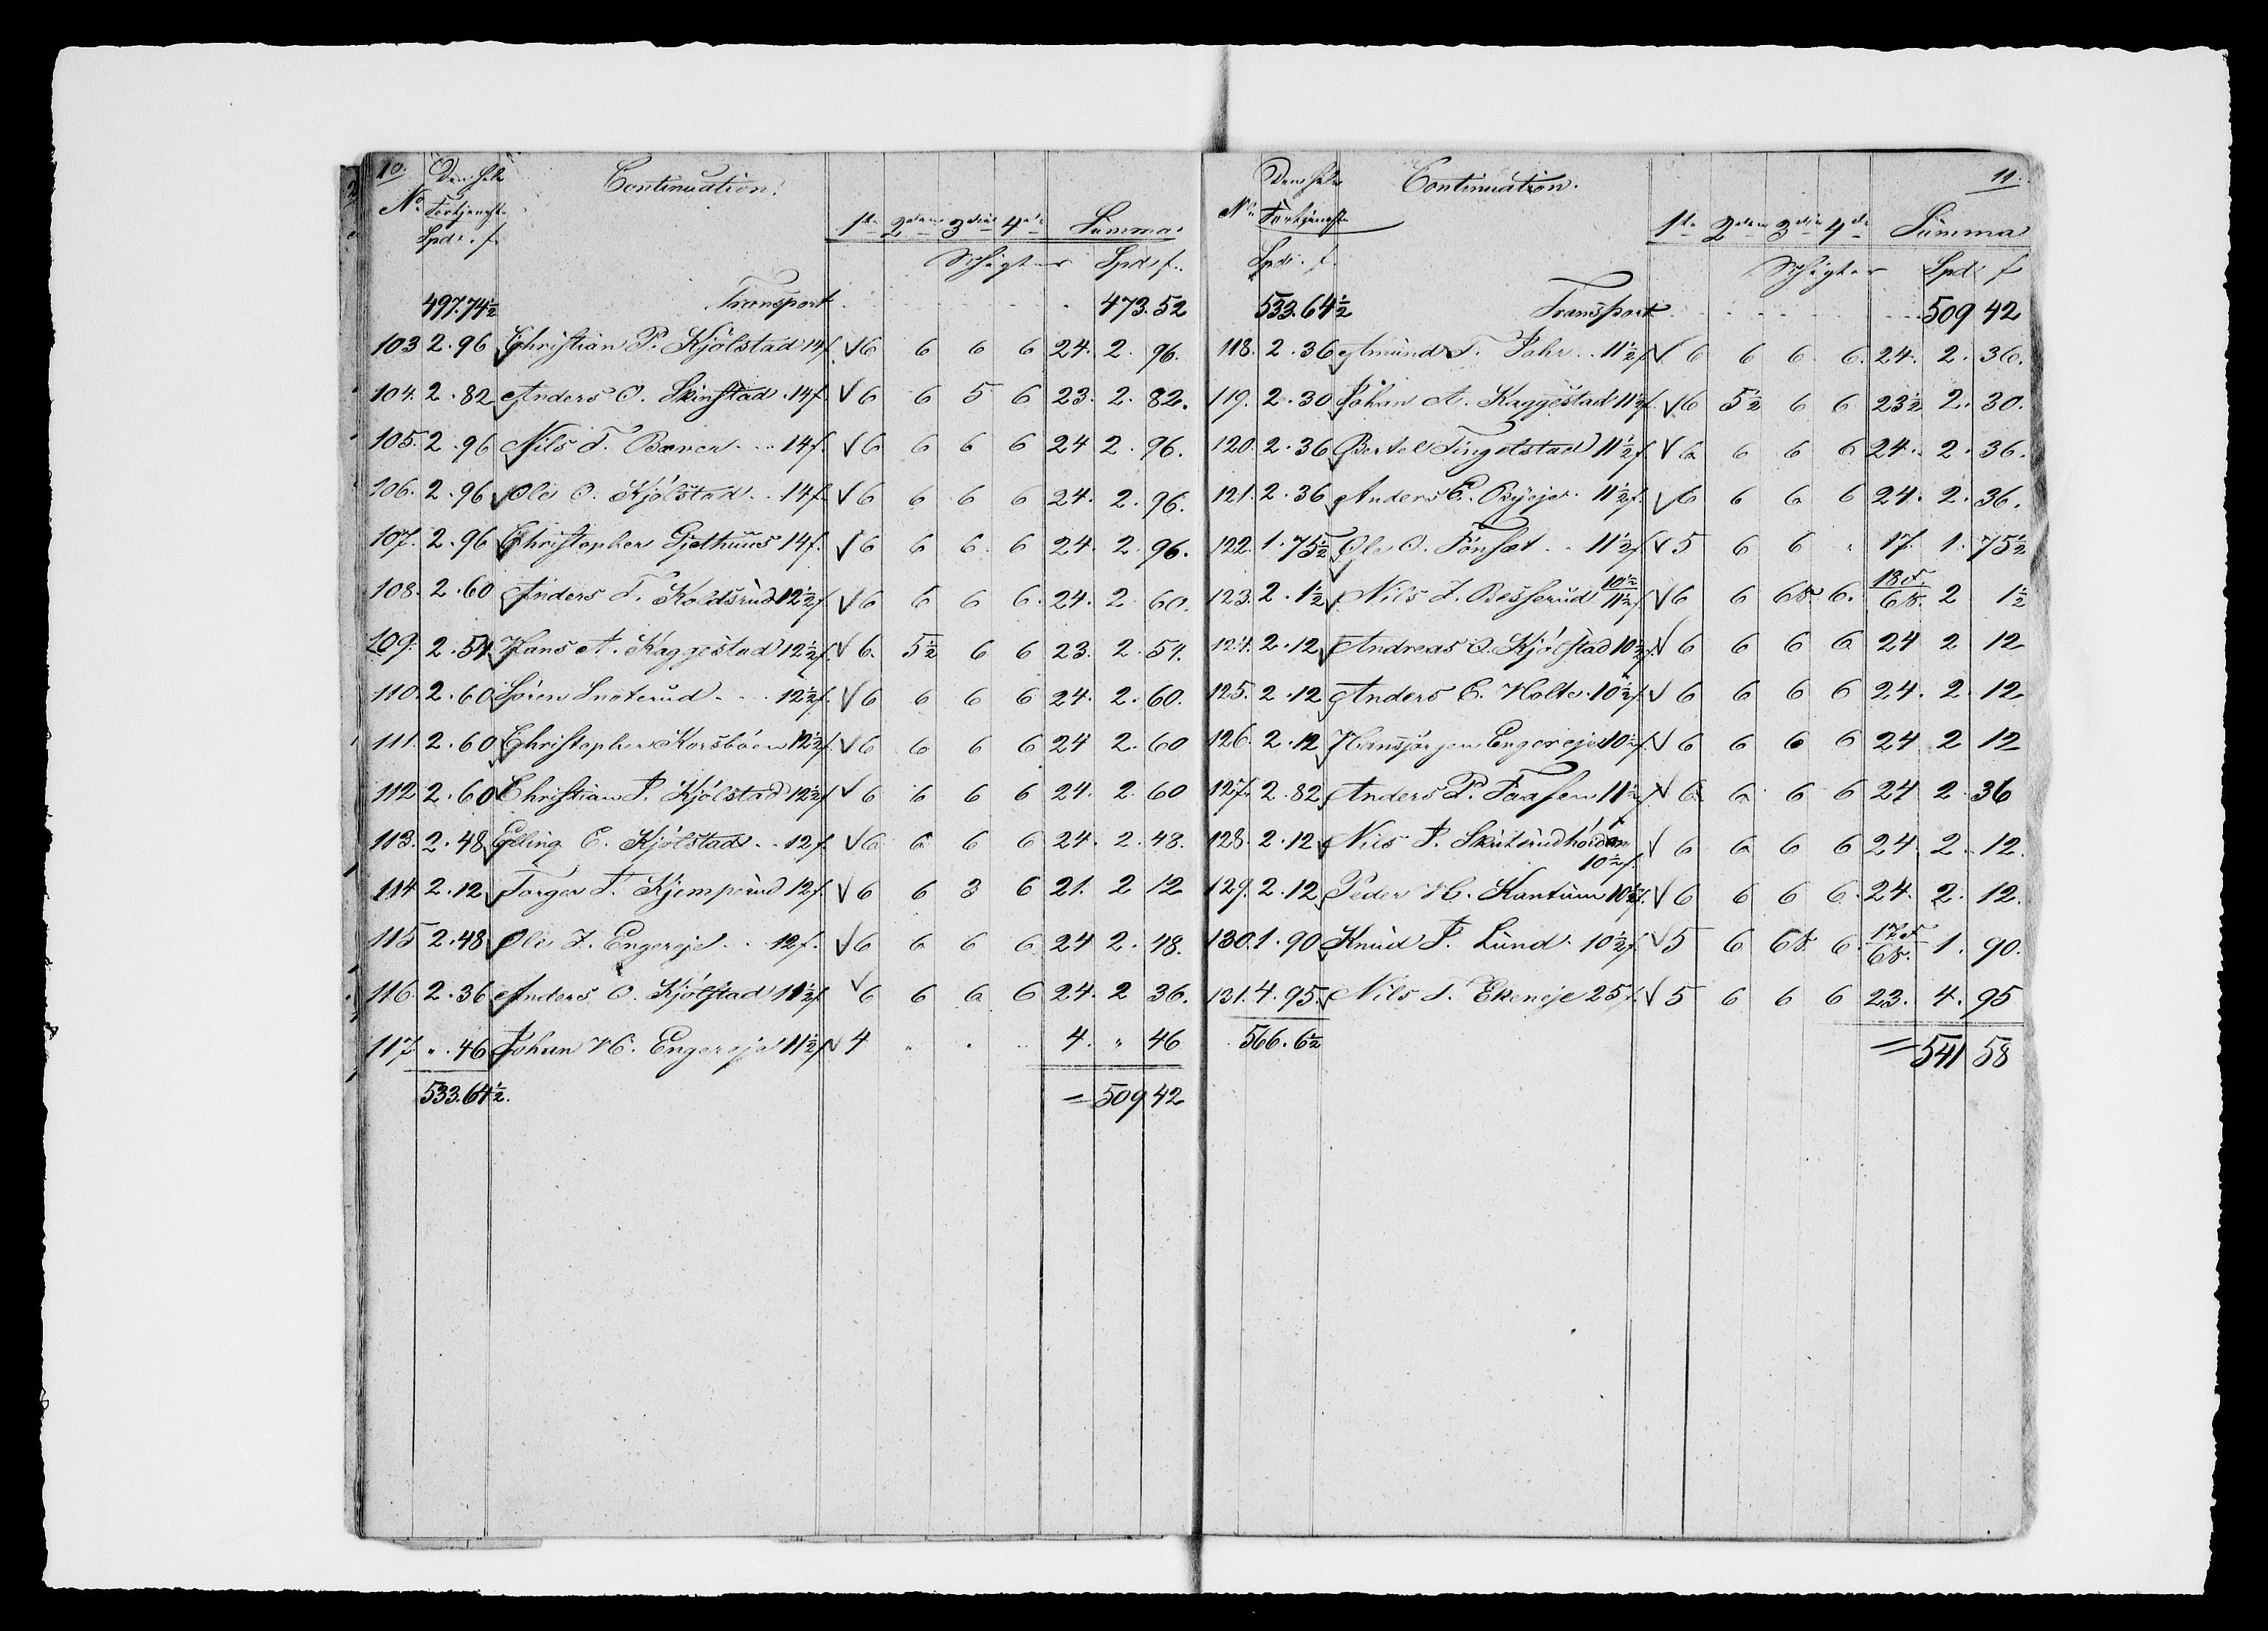 10.
Continuation.
No Fortjeneste
Spd. f.
1ste 2den 3die 4de Summa
Schigter Spd. f.
497.74½ Transport 473.52
103 2.96 Christian P. Kjölstad 14f. 6 6 6 6 24. 2. 96.
104. 2.82 Anders O. Skinstad 14f. 6 6 5 6 23. 2. 82.
105. 2.96 Nils T. Bæver 14f. 6 6 6 6 24 2. 96.
106. 2.96 Ole O. Kjölstad 14f. 6 6 6 6 24. 2. 96.
107. 2.96 Christopher Gjethuus 14f. 6 6 6. 6 24. 2. 96.
108. 2.60 Anders T. Koldsrud 12½f. 6 6 6 6. 24. 2 60.
109. 2.54 Hans A. Kaggestad 12½f. 6. 5½ 6 6 23. 2. 54.
110. 2.60 Sören Snoterud 12½f. 6 6 6 6 24. 2. 60.
111. 2.60 Christopher Korsböen 12½f. 6 6 6 6 24 2. 60
112 2.60 Christian P. Kjölstad 12½f 6 6 6 6 24. 2. 60
113. 2.48 Elling C. Kjölstad 12f. 6 6 6 6 24. 2. 48.
114 2.12 Torger T. Kjemperud 12f. 6 6 3 6 21. 2 12
115 2.48 Ole J. Engereje 12f. 6 6 6 6 24 2. 48.
116. 2.36 Anders O. Kjölstad 11½f 6 6 6 6 24. 2 36.
117 „.46 Johan H. Engereje 11½f 4 „ 4. „ 46
533.64½. = 509 42
11.
Continuation.
No. Fortjeneste
Spd. f.
1ste 2den 3die 4de Summa
Schigter Spd. f
533.64½ Transport 509 42
118. 2.36 Amund T. Fahr 11½f. 6 6 6 6. 24. 2. 36.
119. 2.30 Johan A. Kaggestad 11½f. 6 5½ 6 6 23½ 2. 30.
120. 2.36 Bertel Tingelstad 11½f. 6 6 6 6 24. 2. 36.
121. 2.36 Anders C. Byeje 11½f. 6 6 6 6 24. 2. 36.
122. 1.75½ Ole O. Tönset 11½f. 5 6 6 „ 17. 1. 75½
123. 2.1½ Nils J. Besserud 10½ 11½f. 6 6 6 6. 18 6 2 1½
124. 2.12 Andreas O. Kjölstad 10½f. 6 6 6 6 24 2 12
125. 2.12 Anders C. Holte 10½f. 6 6 6 6 24. 2. 12
126. 2.12 Hansjørgen Engereje 10½f. 6 6 6 6 24 2 12
127. 2.82 Anders P. Faafen 11½f 6 6 6 6 24 2. 36
128. 2.12 Nils P. Skuterudhörden 6 6 6 6 24. 2. 12.
10½f.
129. 2.12 Peder H. Kantum 10½f. 6 6 6 6. 24. 2. 12.
130. 1.90 Knud P. Lund 10½f. 5 6 6 6. 17 6 1. 90.
131. 4.95. Nils T. Ekeneje 25f. 5 6 6 6 23. 4. 95
566.6½ = 541 58